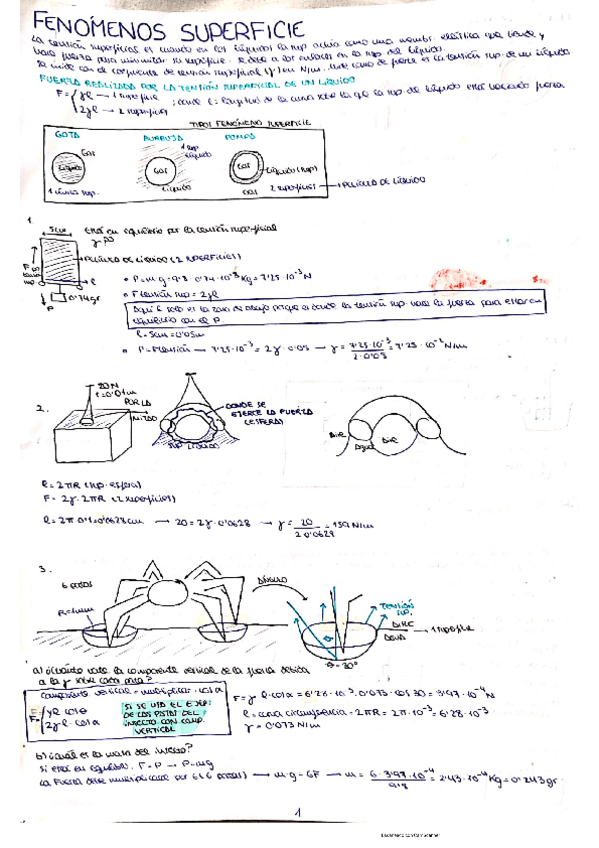 FENÓMENOS SUPERFICIE
La tensión superficial es cuando en los líquidos la sup actúa como una membr. elástica que tiende y
hace fuerza para minimizar su superficie. Se debe a los enlaces en la sup del líquido.
Se mide con el coeficiente de tensión superficial (γ) en N/m.
FUERZA REALIZADA POR LA TENSIÓN SUPERFICIAL DE UN LÍQUIDO
F = γℓ → 1 superficie
2γℓ → 2 superficies
; donde ℓ = longitud de la curva sobre la que la sup del líquido está haciendo fuerza
TIPOS FENÓMENO SUPERFICIE
GOTA BURBUJA POMPAS
Gas
Líquido
1 sup
líquido
Gas
Líquido
Gas
Líquido (sup)
Gas
2 superficies → PELÍCULA DE LÍQUIDO
1.
5cm
Está en equilibrio por la tensión superficial
PELÍCULA DE LÍQUIDO (2 SUPERFICIES)
F
ℓ
P
0'74gr
• P = m·g = 9'8·0'74·10⁻³Kg = 7'25·10⁻³N
• F tensión sup = 2γℓ
Aquí ℓ solo es la zona de abajo porque es donde la tensión sup. hace la fuerza para estar en
equilibrio con el P
ℓ = 5cm = 0'05m
• P = Ftensión → 7'25·10⁻³ = 2γ·0'05 → γ = 7'25·10⁻³ / 2·0'05 = 7'25·10⁻²N/m
2.
20N
r = 0'01m
POR LA
MITAD
DONDE SE
EJERCE LA FUERZA
(ESFERAS)
SUP LÍQUIDO
Aire
Agua
Aire
ℓ = 2πR (sup. esfera)
F = 2γ·2πR (2 superficies)
ℓ = 2π 0'01 = 0'0628cm → 20 = 2γ·0'0628 → γ = 20 / 2·0'0628 = 159N/m
3.
6 patas
R = 1mm
ÁNGULO
TENSIÓN
SUP.
AIRE
AGUA
→ 1 superficie
θ = 30°
a) ¿Cuánto vale la componente vertical de la fuerza debida
a la γ sobre cada pata?
Componente vertical = multiplicar · cos α
F = γℓ cos α
2γℓ · cos α
SI SE USA EL EJEM.
DE LAS PATAS DEL
INSECTO CON COMP.
VERTICAL
F = γ ℓ·cos α = 6'28·10⁻³·0'073·cos 30 = 3'97·10⁻⁴N
ℓ = una circunferencia = 2πR = 2π·10⁻³ = 6'28·10⁻³
γ = 0'073N/m
b) ¿Cuál es la masa del insecto?
Si está en equilibrio: F = P → P = mg
La fuerza debe multiplicarse por 6 (6 patas) → m·g = 6F → m = 6·3'97·10⁻⁴ / 9'8 = 2'43·10⁻⁴Kg = 0'243gr
1
Escaneado con CamScanner